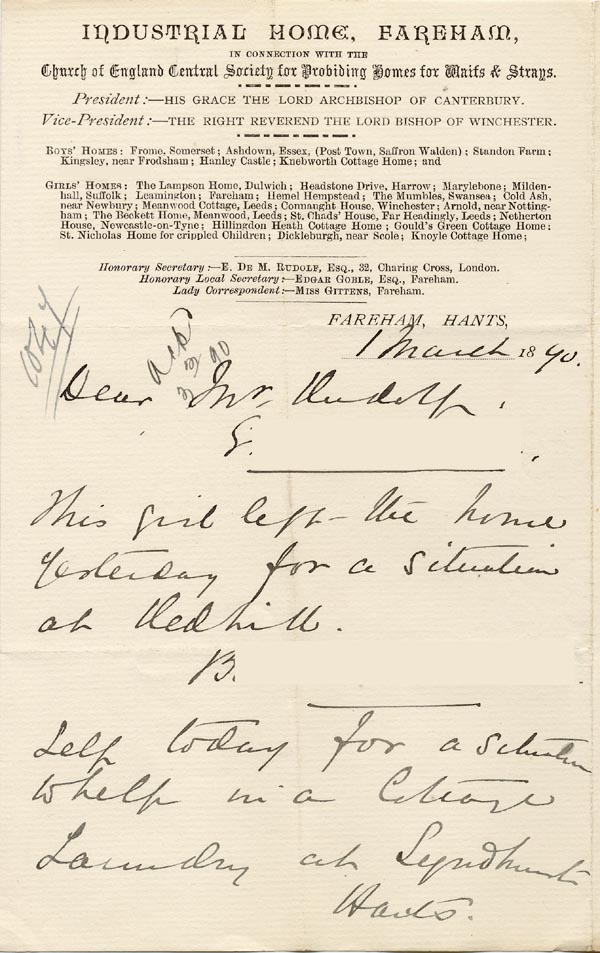 INDUSTRIAL HOME, FAREHAM,
IN CONNECTION WITH THE
Church of England Central Society for Probiding Homes for Waifs & Strays.
President:—HIS GRACE THE LORD ARCHBISHOP OF CANTERBURY.
Vice-President:—THE RIGHT REVEREND THE LORD BISHOP OF WINCHESTER.
BOYS' HOMES: Frome, Somerset; Ashdown, Essex, (Post Town, Saffron Walden); Standon Farm;
Kingsley, near Frodsham; Hanley Castle; Knebworth Cottage Home; and
GIRLS' HOMES: The Lampson Home, Dulwich; Headstone Drive, Harrow; Marylebone; Milden-
hall, Suffolk; Leamington; Fareham; Hemel Hempstead; The Mumbles, Swansea; Cold Ash,
near Newbury; Meanwood Cottage, Leeds; Connaught House, Winchester; Arnold, near Notting-
ham; The Beckett Home, Meanwood, Leeds; St. Chads' House, Far Headingly, Leeds; Netherton
House, Newcastle-on-Tyne; Hillingdon Heath Cottage Home; Gould's Green Cottage Home:
St. Nicholas Home for crippled Children; Dickleburgh, near Scole; Knoyle Cottage Home;
Honorary Secretary:—E. DE M. RUDOLF, ESQ., 32, Charing Cross, London.
Honorary Local Secretary:—EDGAR GOBLE, ESQ., Fareham.
Lady Correspondent:—MISS GITTENS, Fareham.
FAREHAM, HANTS,
1 March 1890.
ackd
3/3/90
Dear Mr Rudolf,
G.
This girl left the home
yesterday for a situation
at Redhill.
B.
Left today for a situation
to help in a Cottage
Laundry at Lyndhurst
Hants.